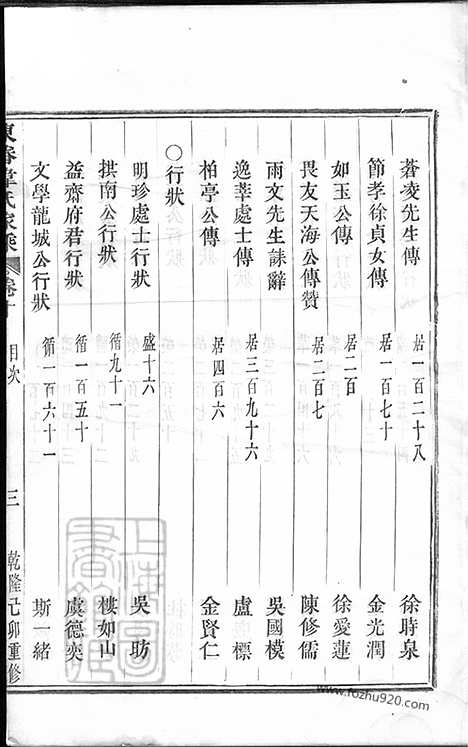 蒼凌先生傳 居一百二十八 徐時泉
節孝徐貞女傳 居一百七十 金光潤
如玉公傳 居二百 徐愛蓮
畏友天海公傳贊 居二百七 陳修儒
雨文先生誄辭 吳國模
逸莘處士傳 居三百九十六 盧標
柏亭公傳 居四百六 金賢仁
○行狀
明珍處士行狀 盛十六 吳昉
拱南公行狀 循九十一 樓如山
益齋府君行狀 循一百五十 虞德奕
文學龍城公行狀 循一百六十一 斯一緒
東眷韋氏家乘 卷十 目次 三 乾隆己卯重修
上海圖書館藏
www.fozhu920.com